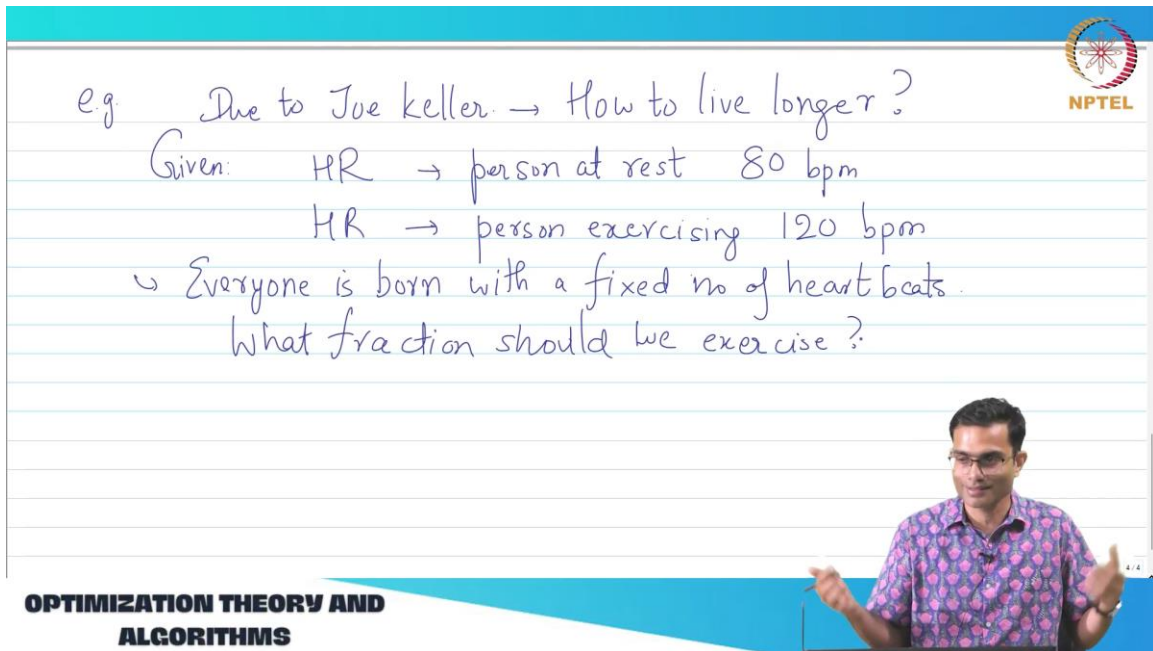 NPTEL
e.g. Due to Joe Keller. → How to live longer?
Given: HR → person at rest 80 bpm
HR → person exercising 120 bpm
↪ Everyone is born with a fixed no of heartbeats.
What fraction should we exercise?
4 / 4
OPTIMIZATION THEORY AND
ALGORITHMS